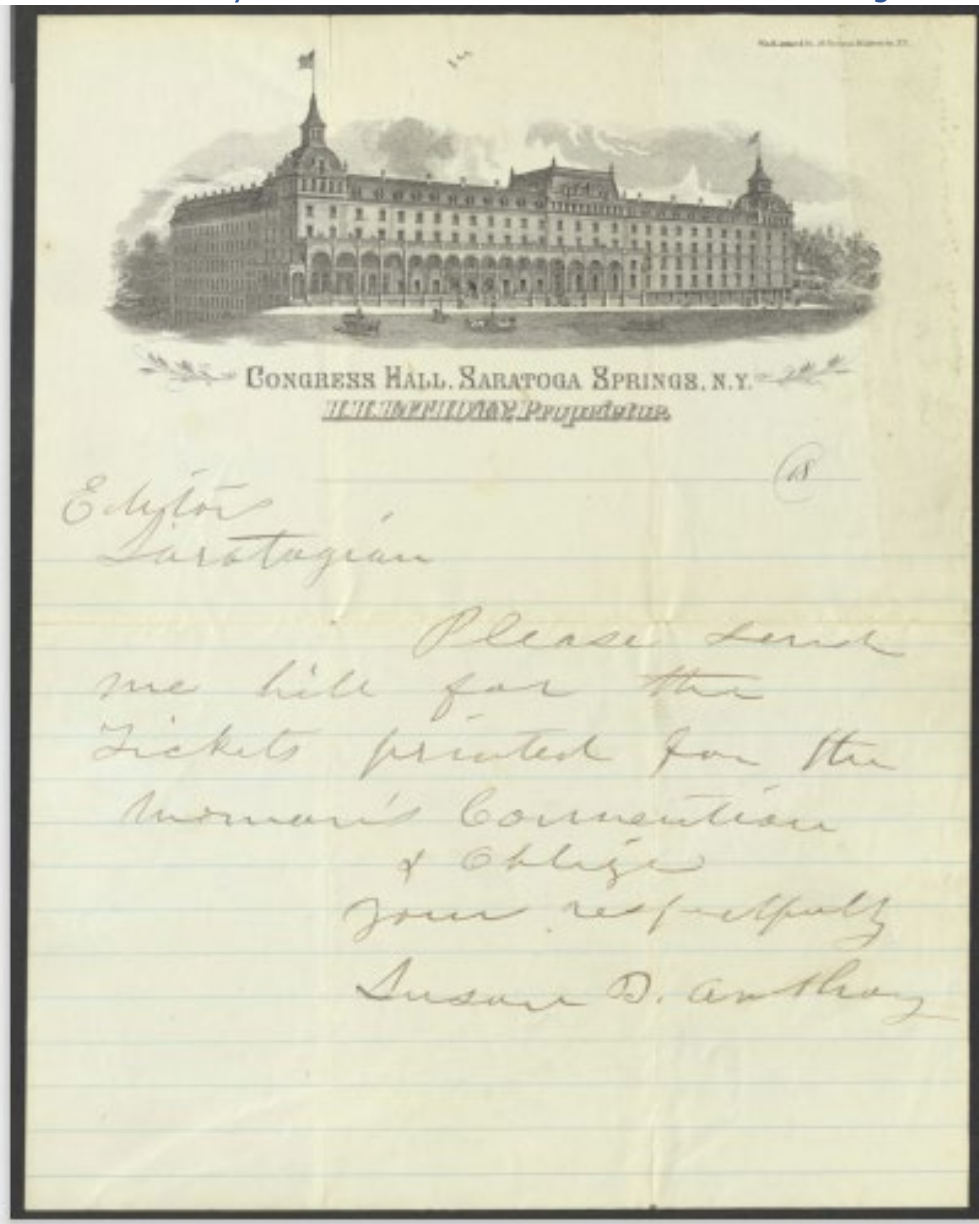 CONGRESS HALL, SARATOGA SPRINGS, N.Y.
H.H. HATHORN, Proprietor.
18
Editor
Saratogian
Please send
me bill for the
Tickets printed for the
Woman's Convention
& Oblige
Yours respectfully
Susan B. Anthony